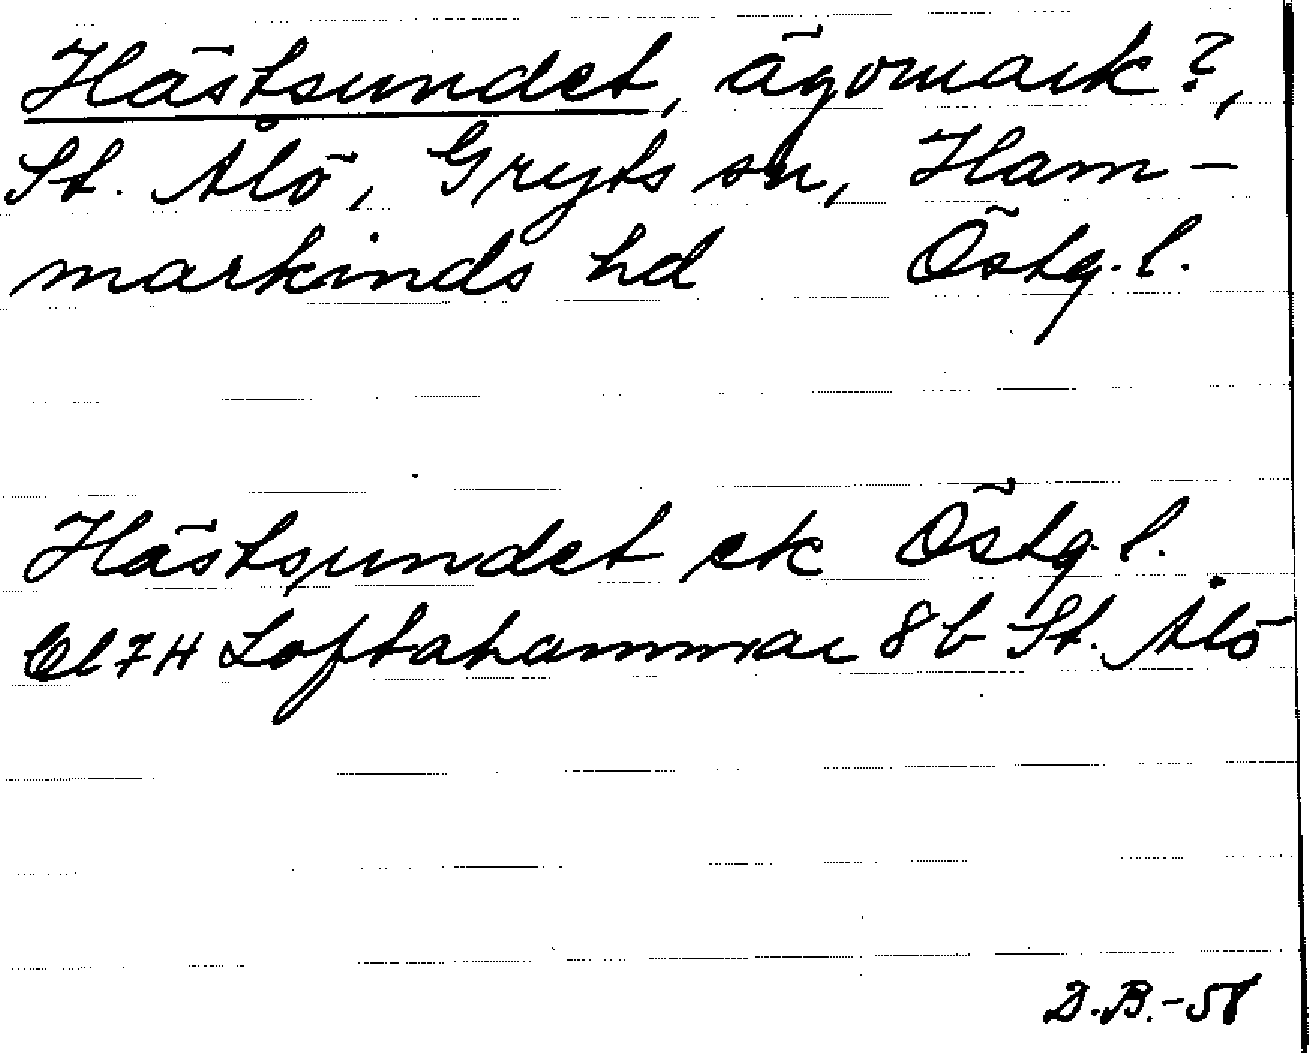 Hästsundet, ägomark?,
St. Ålö, Gryts sn, Ham-
markinds hd Östg.l.
Hästsundet ek Östg.l.
Bl 7H Loftahammar 8b St. Ålö
D.B.-58